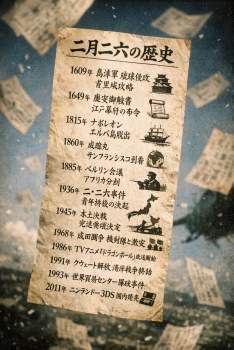 二月二六の歴史
1609年 島津軍 琉球侵攻
首里城攻略
1649年 慶安御触書
江戸幕府の布令
1815年 ナポレオン
エルバ島脱出
1860年 咸臨丸
サンフランシスコ到着
1885年 ベルリン会議
アフリカ分割
1936年 二・二六事件
青年将校の決起
1945年 本土決戦
完遂発現決定
1968年 成田闘争 機動隊と激突
1986年 TVアニメ「ドラゴンボール」放送開始
1991年 クウェート解放 湾岸戦争終結
1993年 世界貿易センター爆破事件
2011年 ニンテンドー3DS 国内発売